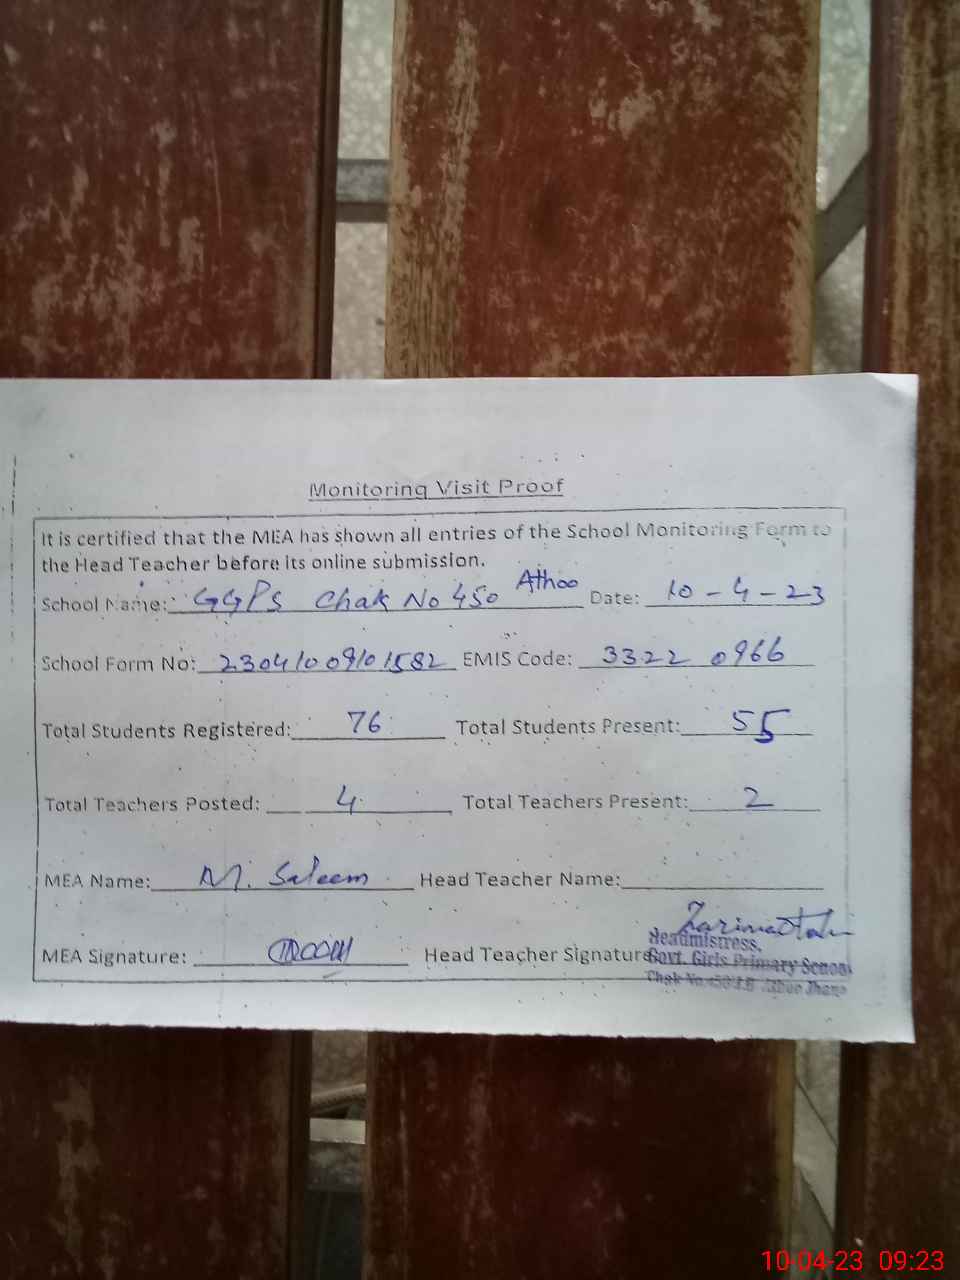 Monitoring Visit Proof
It is certified that the MEA has shown all entries of the School Monitoring Form to
the Head Teacher before its online submission.
School Name: GGPS Chak No 450 Athoo Date: 10-4-23
School Form No: 23041009101582 EMIS Code: 3322 0966
Total Students Registered: 76 Total Students Present: 55
Total Teachers Posted: 4 Total Teachers Present: 2
MEA Name: M. Saleem Head Teacher Name:
MEA Signature: Head Teacher Signature
Headmistress,
Govt. Girls Primary School
Chak No. 450 J.B Jhang
10-04-23 09:23